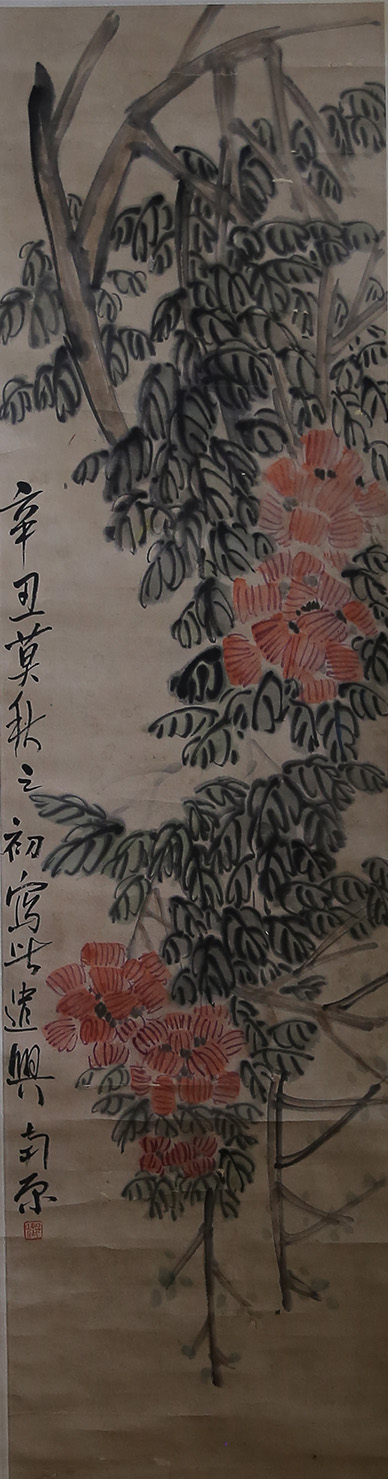 辛丑莫秋之初寫此遣興南原